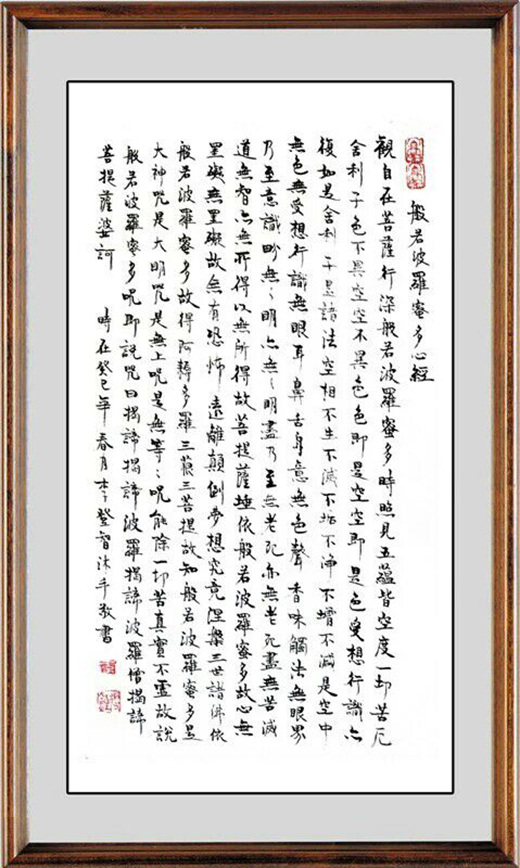 般若波羅蜜多心經
觀自在菩薩行深般若波羅蜜多時照見五蘊皆空度一切苦厄
舍利子色不異空空不異色色即是空空即是色受想行識亦
復如是舍利子是諸法空相不生不滅不垢不淨不增不減是空中
無色無受想行識無眼耳鼻舌身意無色聲香味觸法無眼界
乃至意識界無無明亦無無明盡乃至無老死亦無老死盡無苦滅
道無智亦無所得以無所得故菩提薩埵依般若波羅蜜多故心無
罣礙無罣礙故無有恐怖遠離顛倒夢想究竟涅槃三世諸佛依
般若波羅蜜多故得阿耨多羅三藐三菩提故知般若波羅蜜多是
大神咒是大明咒是無上咒是無等等咒能除一切苦真實不虛故說
般若波羅蜜多咒即說咒曰揭諦揭諦波羅揭諦波羅僧揭諦
菩提薩婆訶 時在癸巳年春月李登智沐手敬書